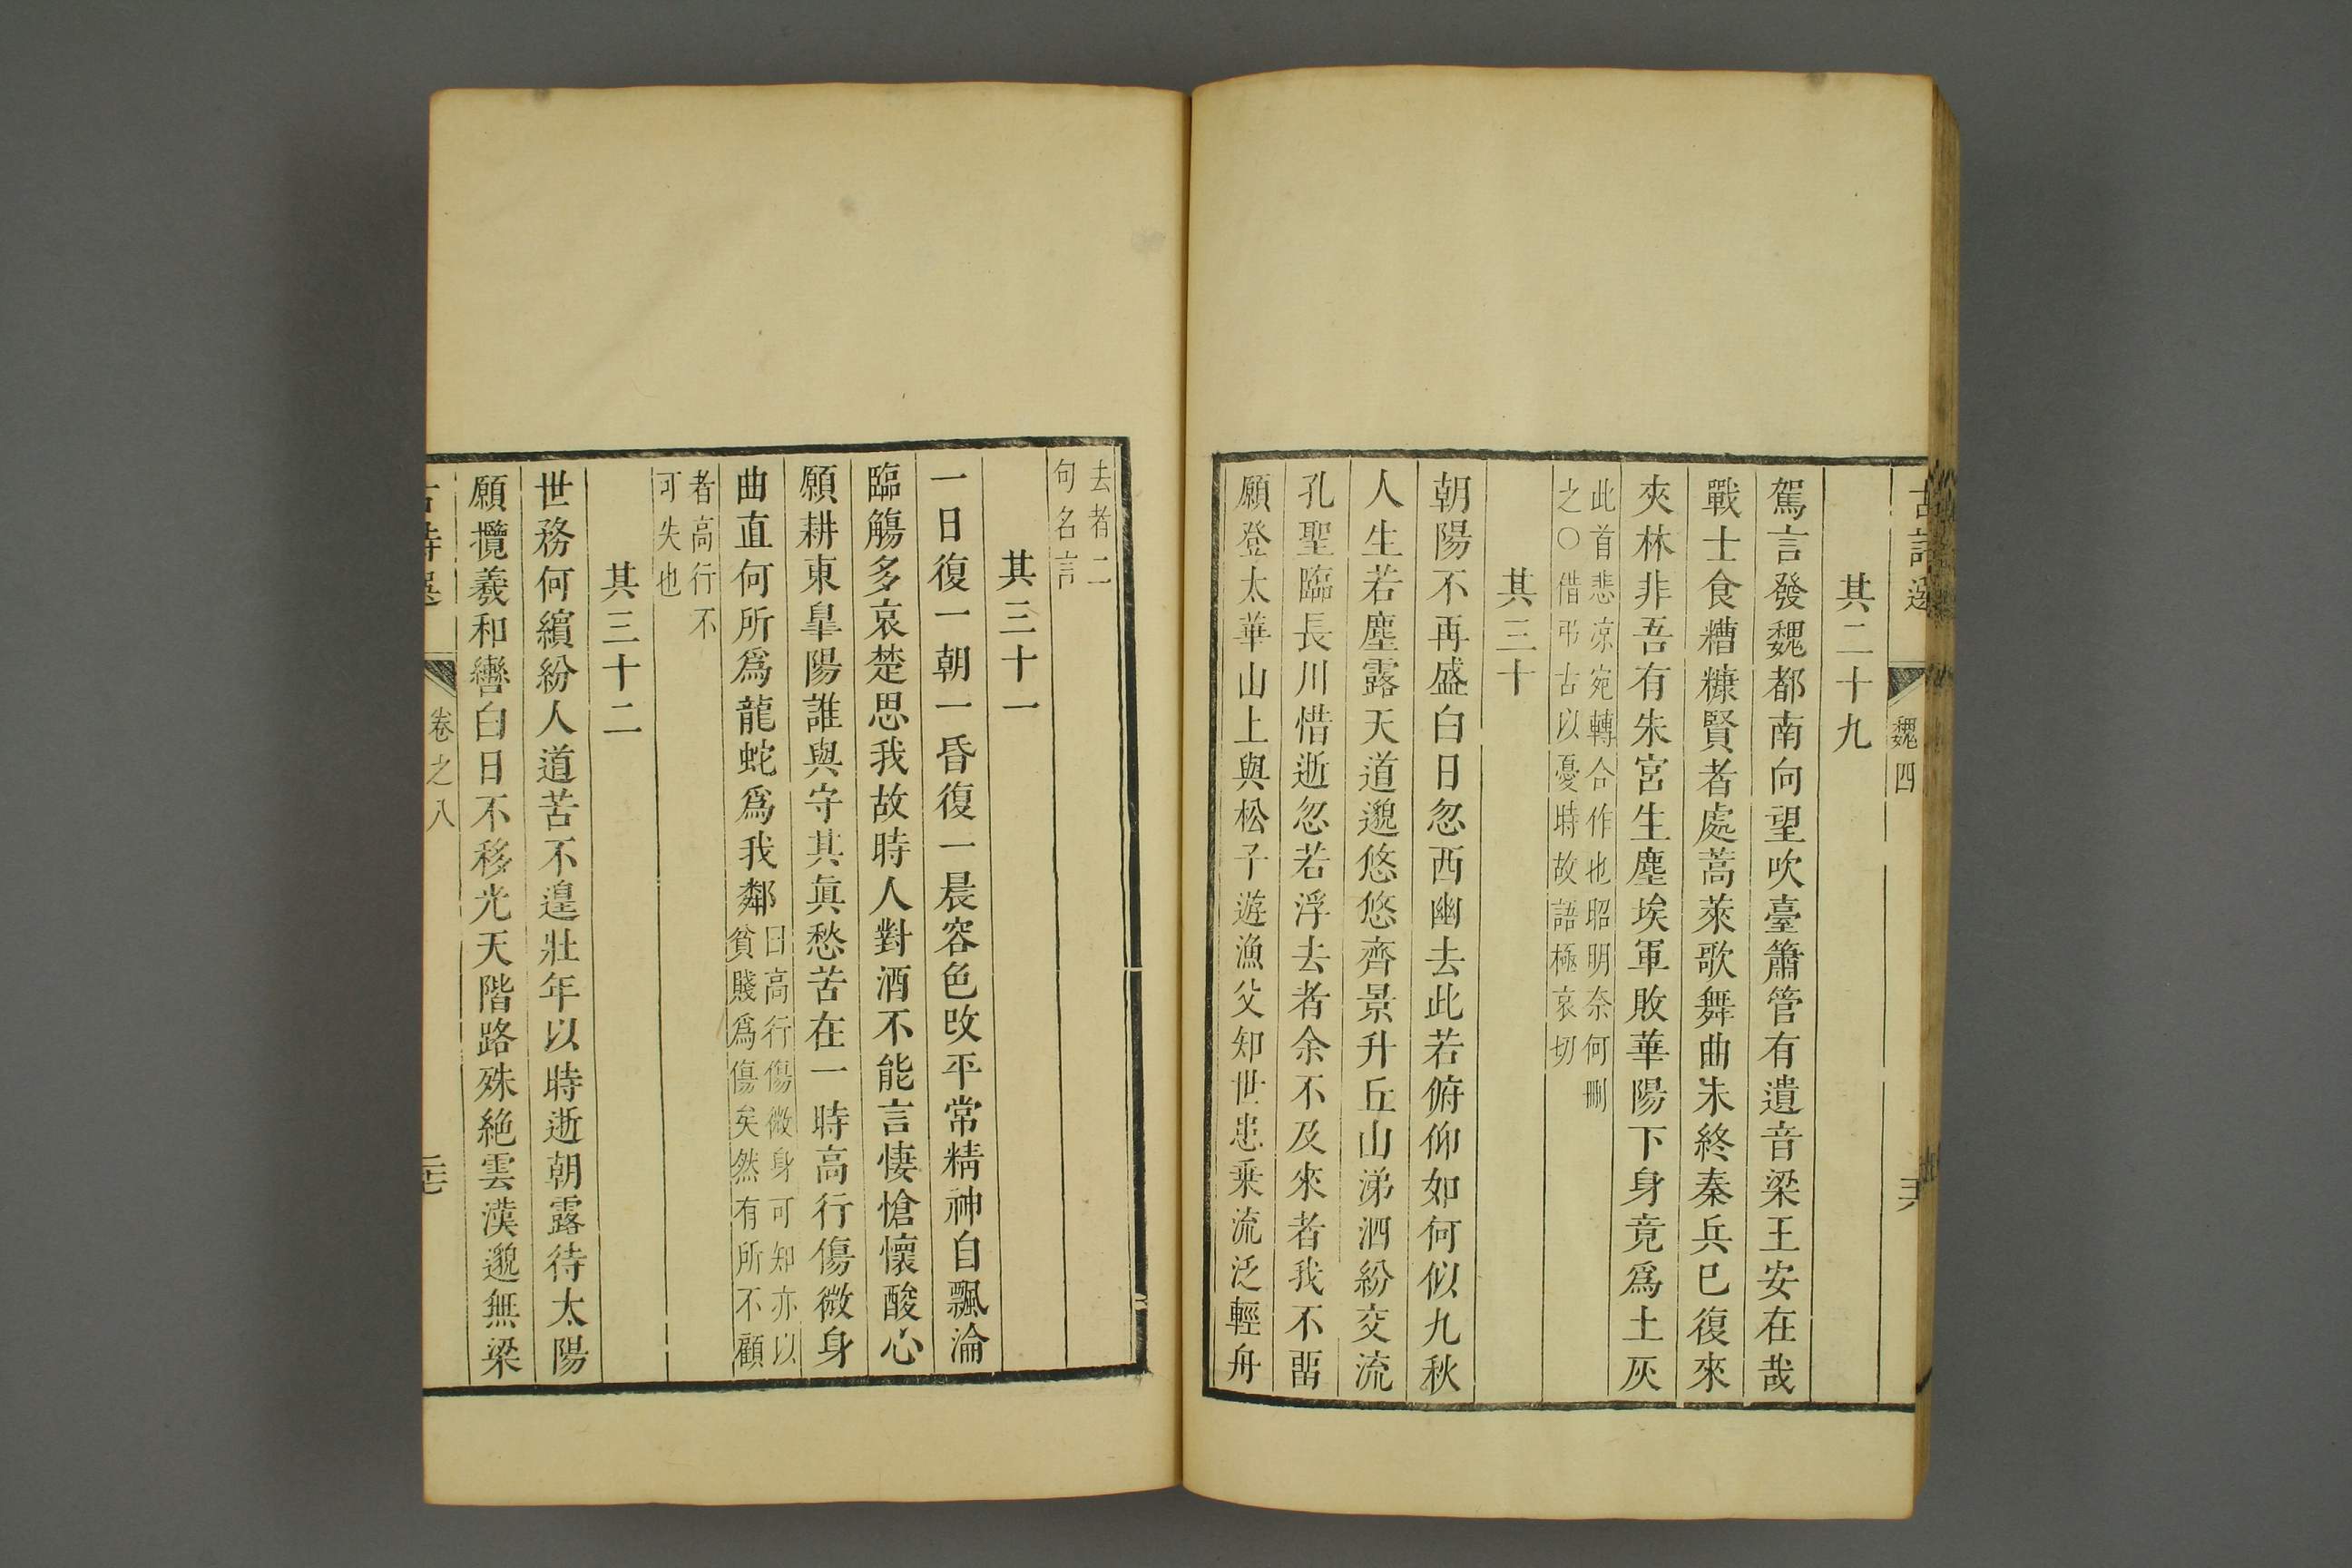 古詩選
魏四
其二十九
駕言發魏都南向望吹臺簫管有遺音梁王安在哉
戰士食糟糠賢者處蒿萊歌舞曲未終秦兵已復來
夾林非吾有朱宮生塵埃軍敗華陽下身竟爲土灰
此首悲凉宛轉合作也昭明奈何刪
之○借弔古以憂時故語極哀切
其三十
朝陽不再盛白日忽西幽去此若俯仰如何似九秋
人生若塵露天道邈悠悠齊景升丘山涕泗紛交流
孔聖臨長川惜逝忽若浮去者余不及來者我不畱
願登太華山上與松子遊漁父知世患乗流泛輕舟
去者二
句名言
其三十一
一日復一朝一昏復一晨容色改平常精神自飄淪
臨觴多哀楚思我故時人對酒不能言悽愴懷酸心
願耕東臯陽誰與守其眞愁苦在一時高行傷微身
曲直何所爲龍蛇爲我鄰
曰高行傷微身可知亦以
貧賤爲傷矣然有所不顧
者高行不
可失也
其三十二
世務何繽紛人道苦不遑壯年以時逝朝露待太陽
願攬羲和轡白日不移光天階路殊絶雲漢邈無梁
古詩選
卷之八